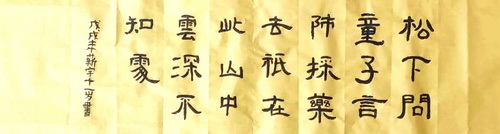 松下問
童子言
師採藥
去祇在
此山中
雲深不
知處
戊戌年薪宇十一岁書